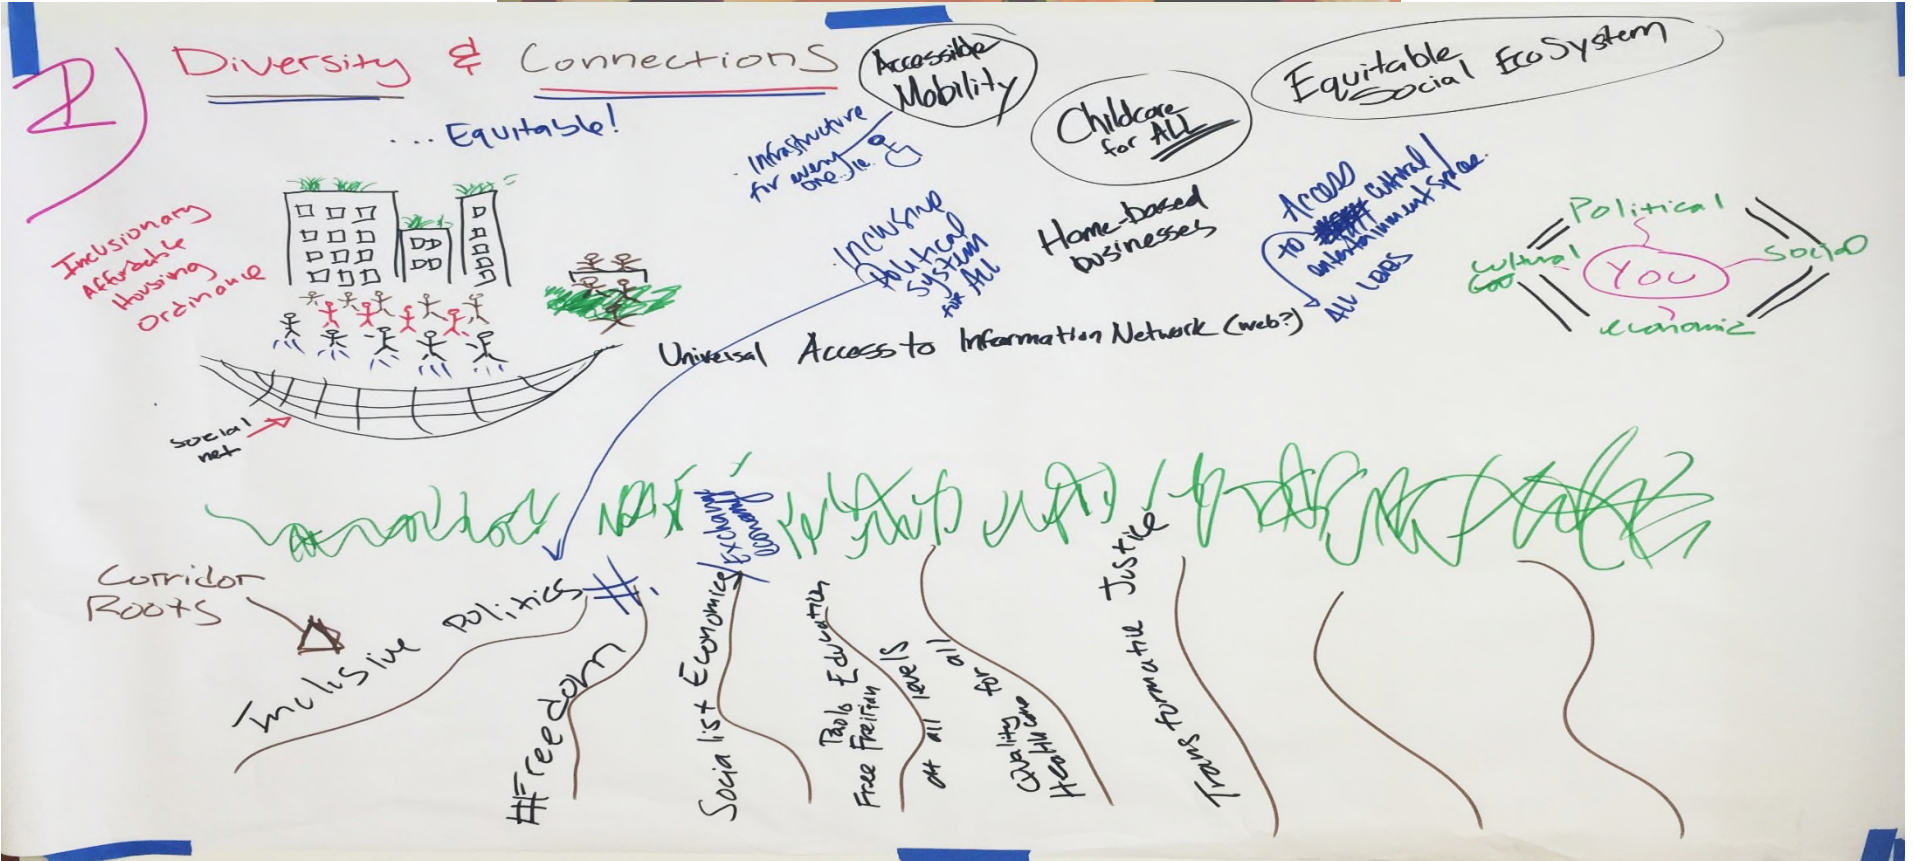 2)
Diversity & Connections
... Equitable!
Accessible
Mobility
Infrastructure
for every
one.. ie.
Childcare
for ALL
Equitable
Social EcoSystem
Inclusionary
Affordable
Housing
Ordinance
Inclusive
Political
System
for ALL
Home-based
businesses
Access
to cultural/
entertainment space.
ALL LEVELS
Political
Cultural
YOU
Social
economic
Universal Access to Information Network (web?)
social
net
Corridor
Roots
Inclusive politics #.
#Freedom
Socialist Economics/Exchange
economy
Paolo
Free Freirian Education
at all levels
Quality
Healthcare for all
Transformative Justice